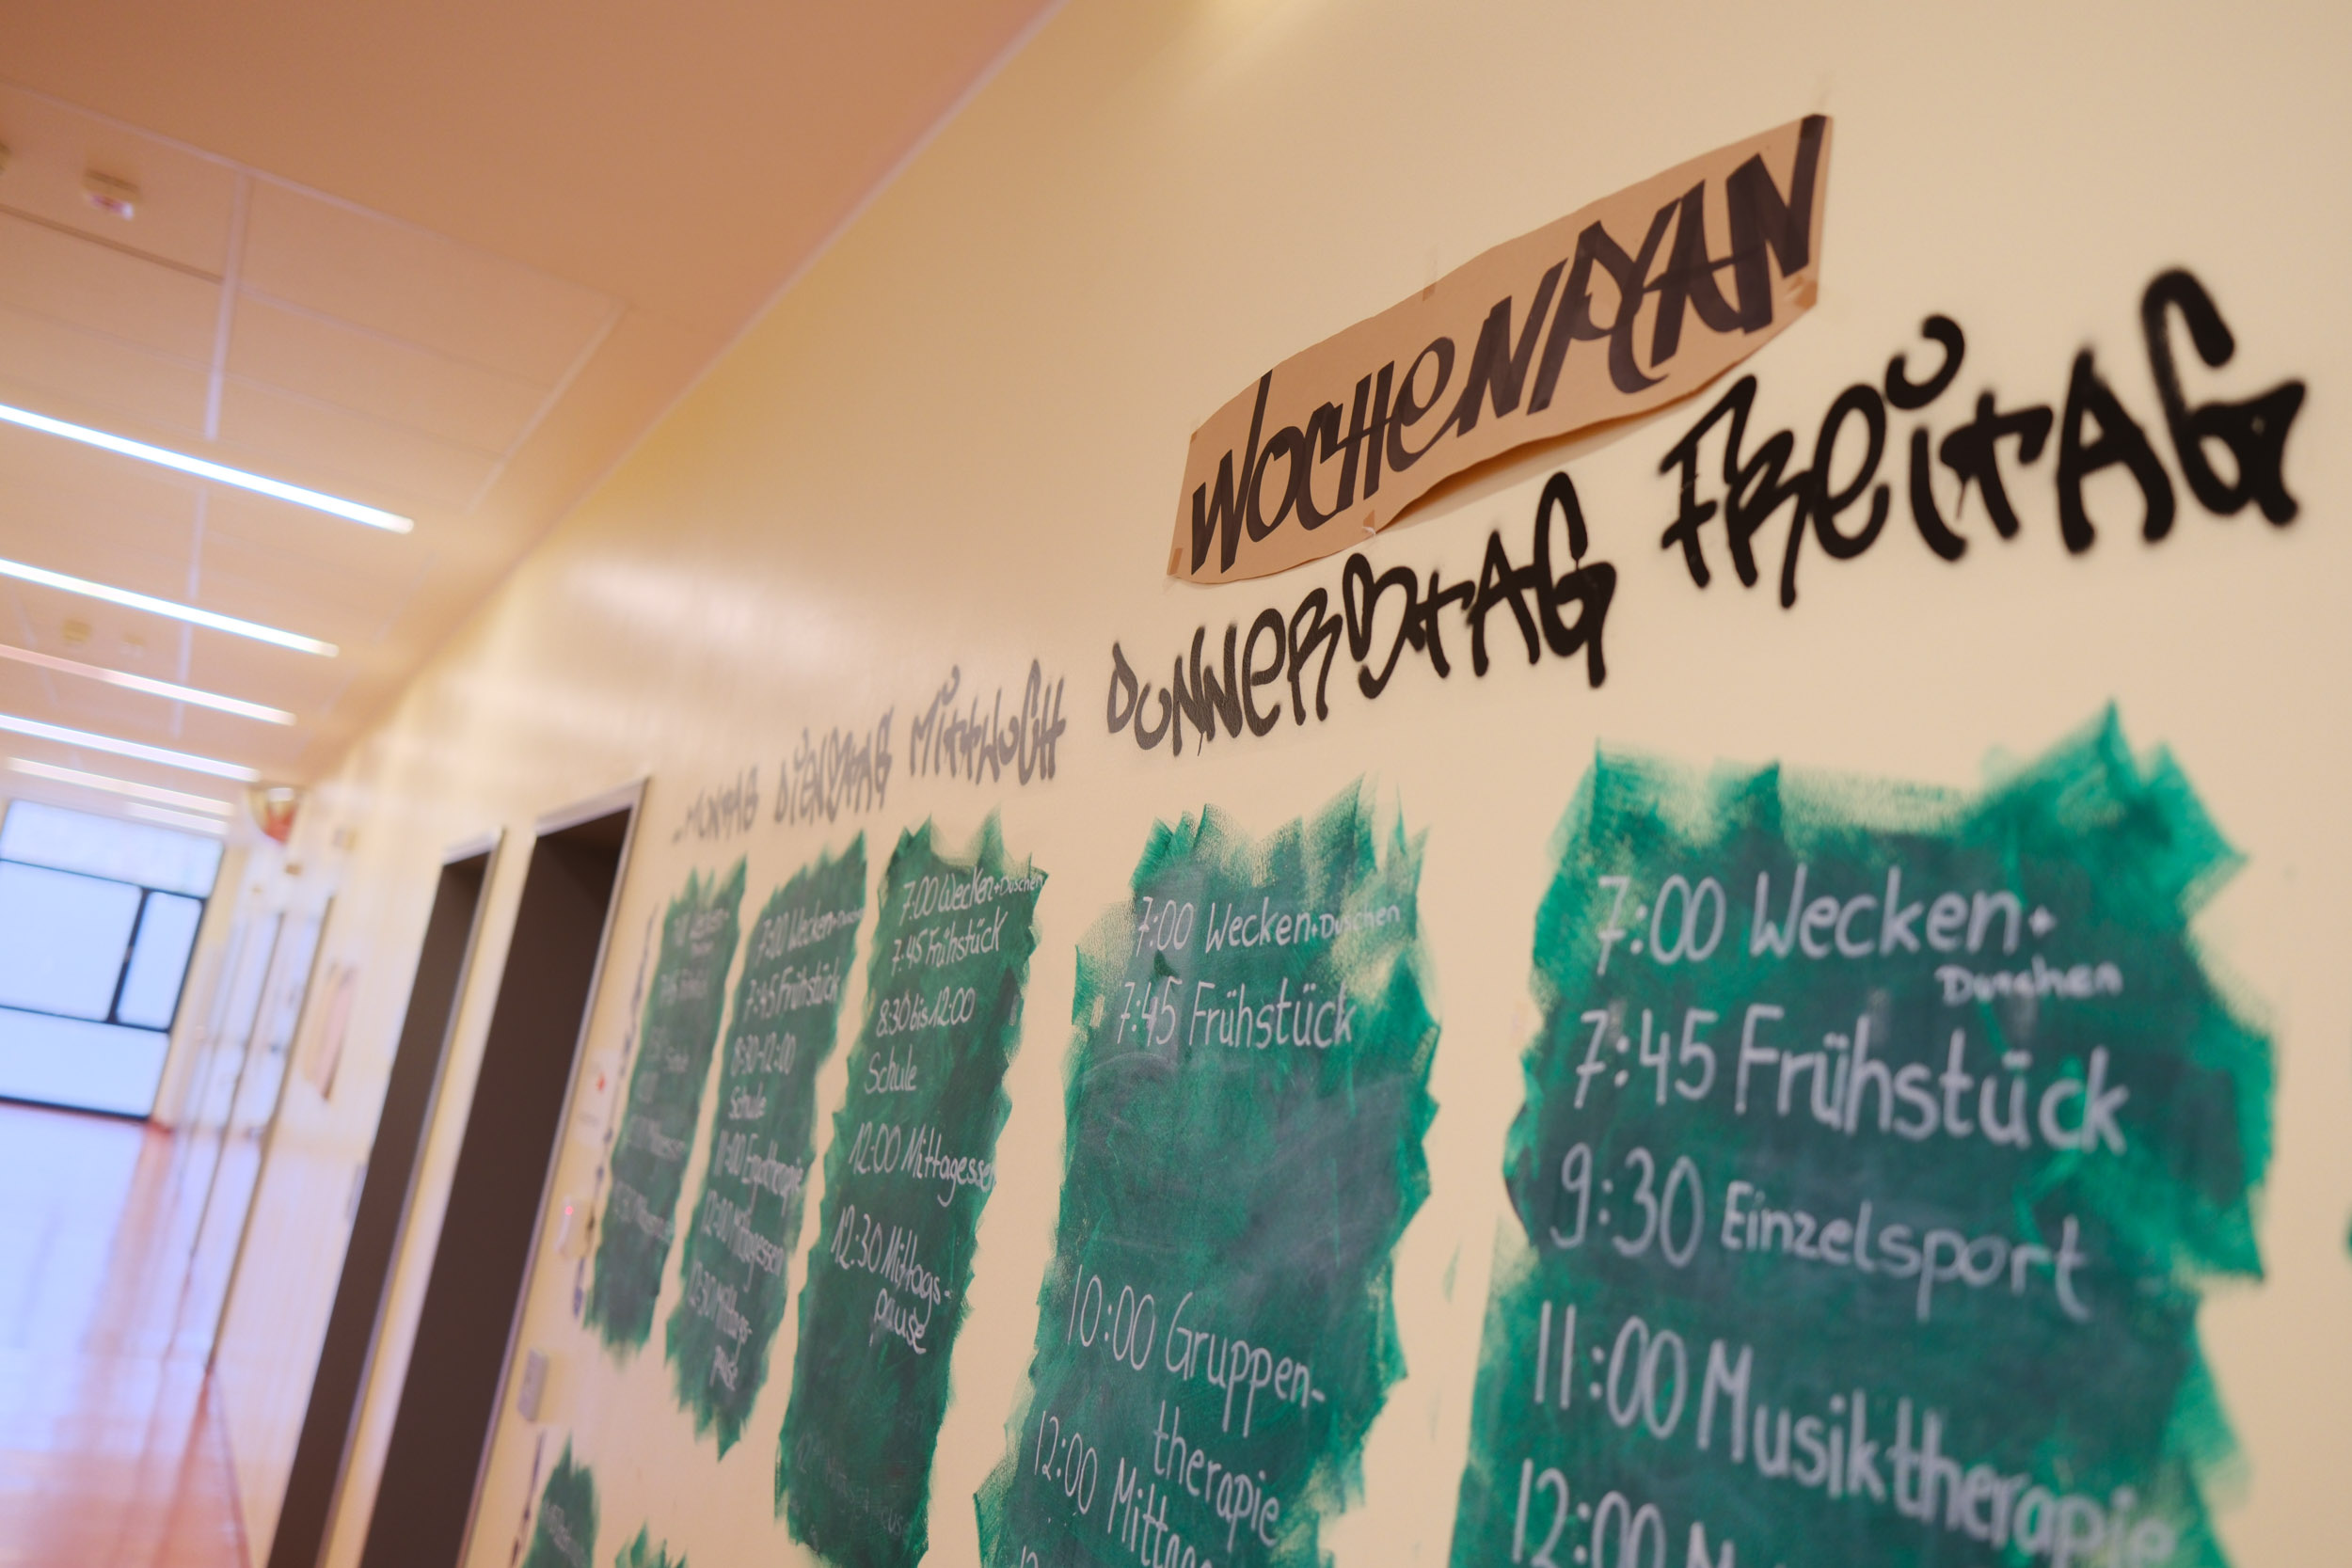 WOCHENPLAN
MONTAG DIENSTAG MITTWOCH DONNERSTAG FREITAG
7:00 Wecken+Duschen
7:45 Frühstück
8:30-12:00
Schule
11:00 Ergotherapie
12:00 Mittagessen
12:30 Mittags-
pause
7:00 Wecken+Duschen
7:45 Frühstück
8:30 bis 12:00
Schule
12:00 Mittagessen
12:30 Mittags-
pause
7:00 Wecken+Duschen
7:45 Frühstück
10:00 Gruppen-
therapie
12:00 Mittage
7:00 Wecken+
Duschen
7:45 Frühstück
9:30 Einzelsport
11:00 Musiktherapie
12:00